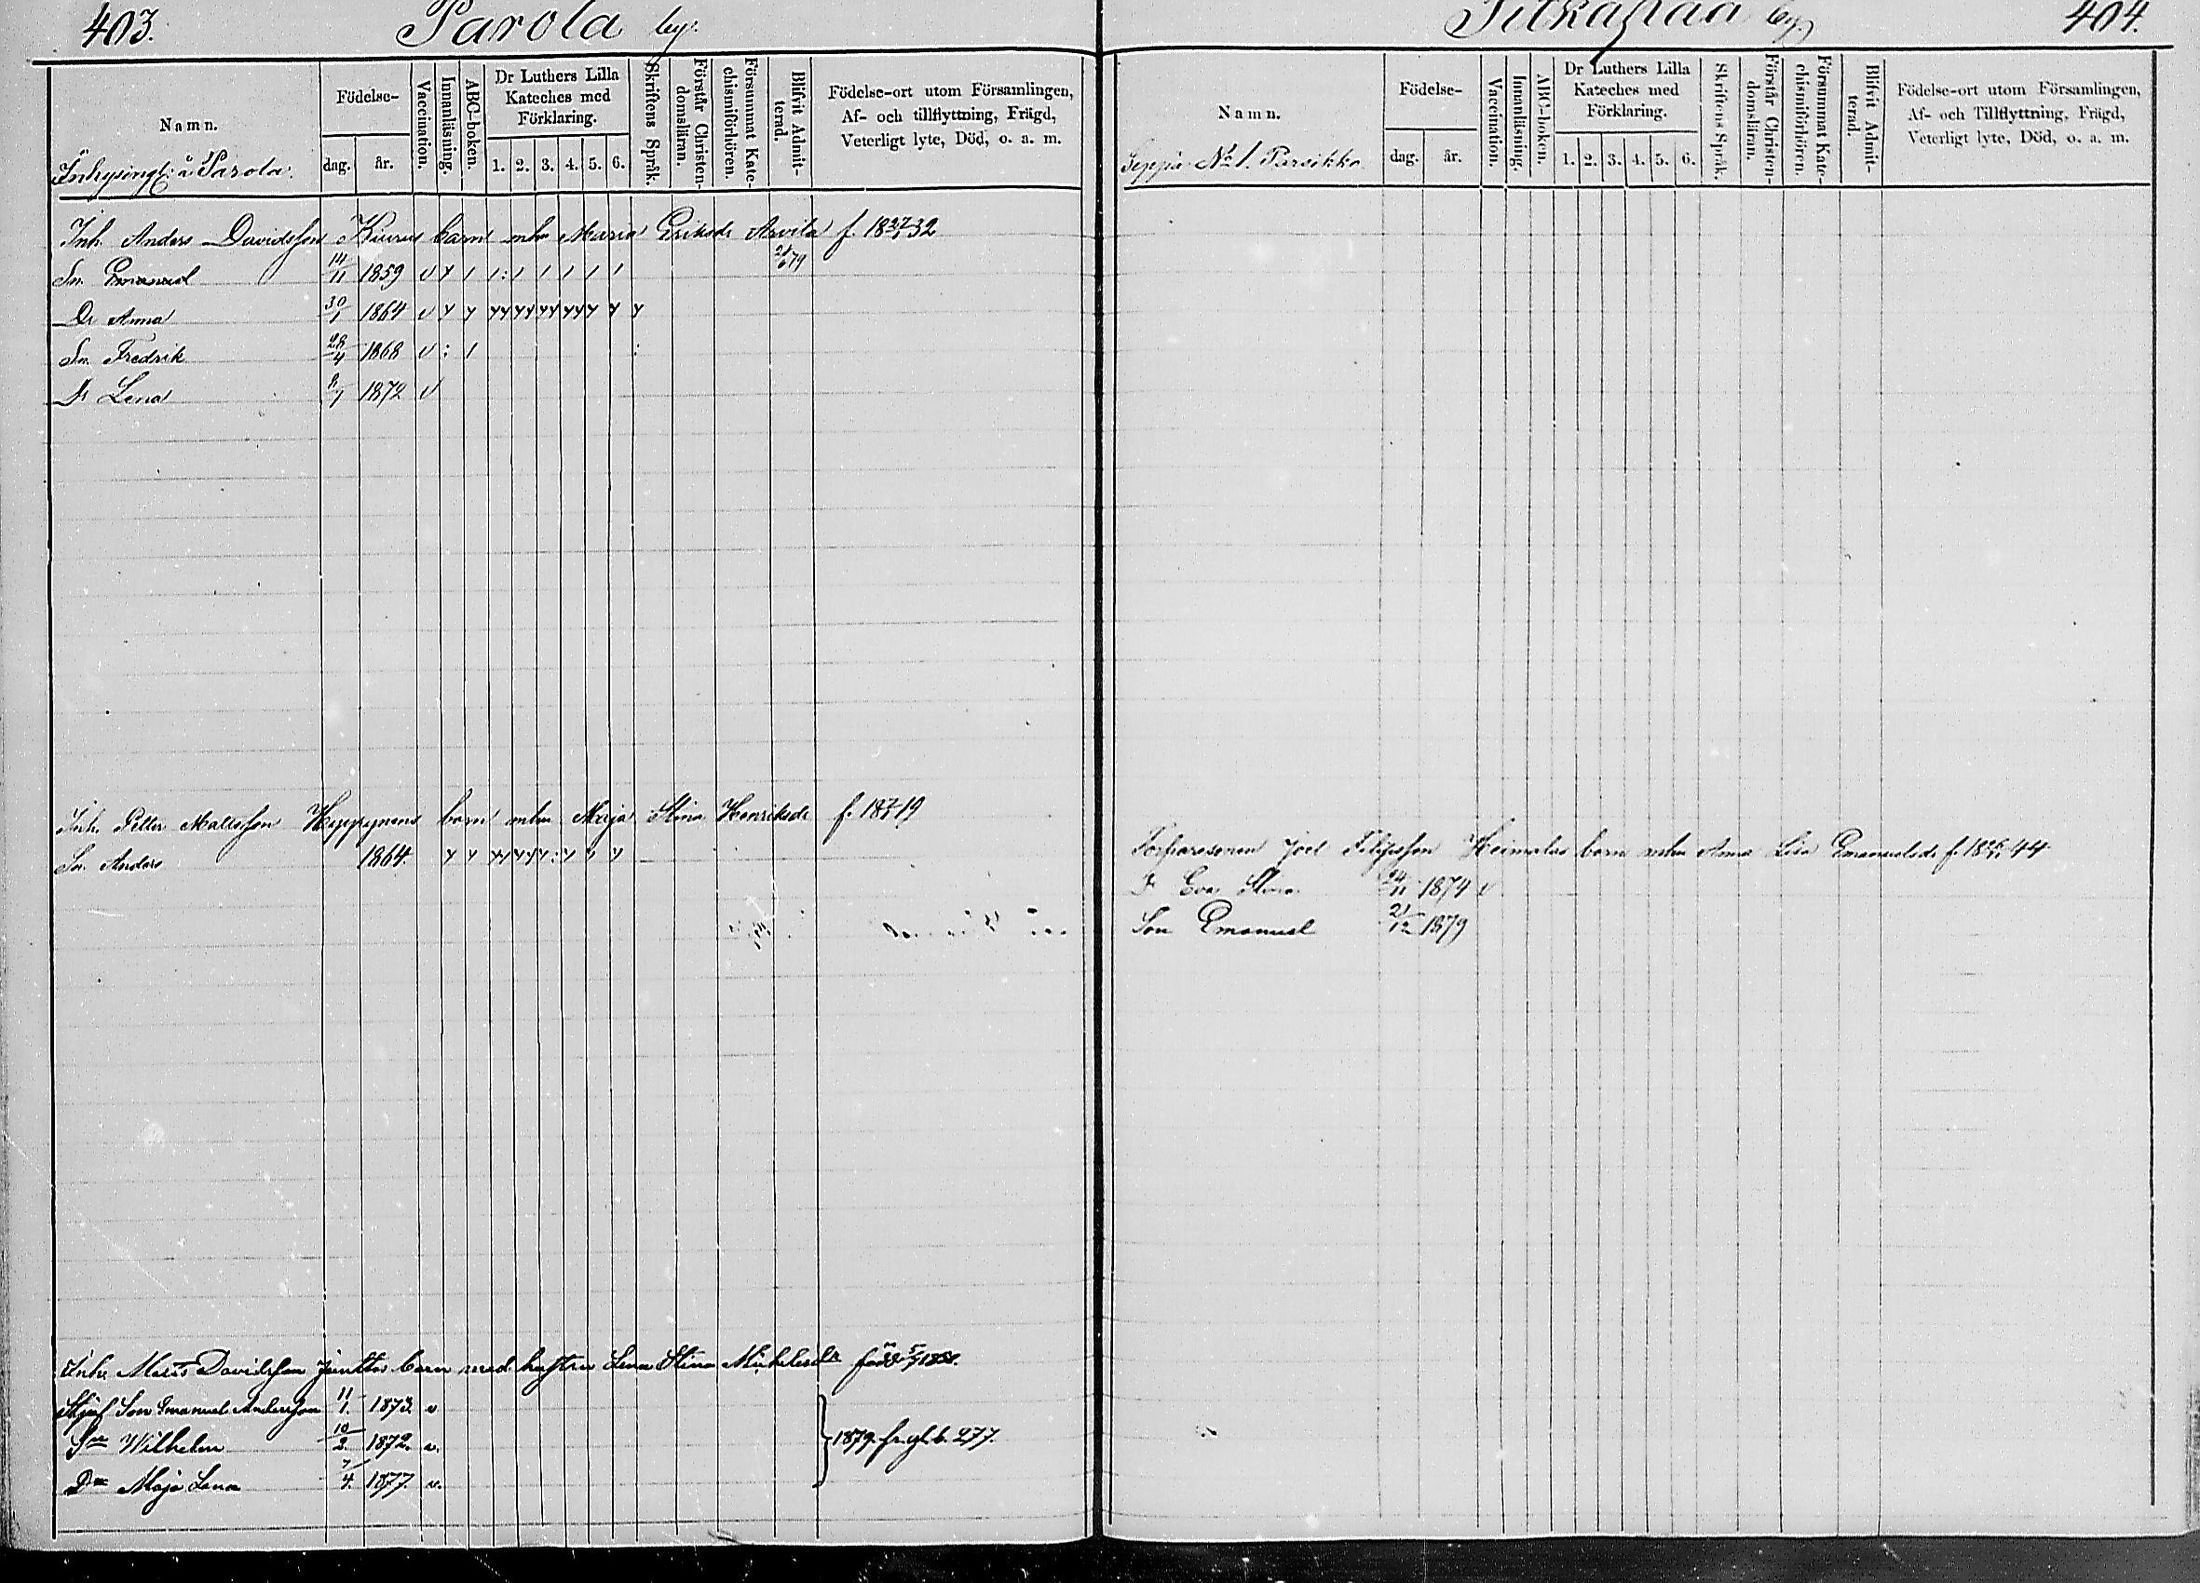 403.
Parola by.
Namn.
Födelse-
dag.
år.
Vaccination.
Innanläsning.
ABC-boken.
Dr Luthers Lilla Kateches med Förklaring.
1. 2. 3. 4. 5. 6.
Skriftens Språk.
Förstår Christendomsläran.
Försummat Katechismiförhören.
Blifvit Admitterad.
Födelse-ort utom Församlingen, Af- och tillflyttning, Frägd, Veterligt lyte, Död, o. a. m.
Inhysingl: å Parola.
Inh. Anders Davidsson Kiurus barn mhu Maria Eriksdr Arvila f. 18 27/1 32
Sn. Emanuel 14/11 1859
Dr Anna 30/1 1864
Sn. Fredrik 28/4 1868
Dr Lena 1872
Inh. Petter Mattsson Heyppynens barn mhu Maja Stina Henriksdr f. 18 19
Sn. Anders 1864
Inh. Matts Davidsson Junttos barn med hustru Lena Stina Michelsdr född
Styf Son Emanuel Andersson 11/1. 1873. v
Sn Wilhelm 10/2. 1872. v.
Dr Maja Lena 7/4. 1877. v.
1879. fr. gl. b. 277.
404.
Pitkäpää by.
Namn.
Födelse-
dag.
år.
Vaccination.
Innanläsning.
ABC-boken.
Dr Luthers Lilla Kateches med Förklaring.
1. 2. 3. 4. 5. 6.
Skriftens Språk.
Förstår Christendomsläran.
Försummat Katechismiförhören.
Blifvit Admitterad.
Födelse-ort utom Församlingen, Af- och Tillflyttning, Frägd, Veterligt lyte, Död, o. a. m.
Seppä No 1. Pursikko
Torparesonen Joel Filipsson Heimalas barn mhu Anna Lisa Emanuelsdr f. 18 44
Dr Eva Stina 24/11 1874 v
Son Emanuel 21/12 1879